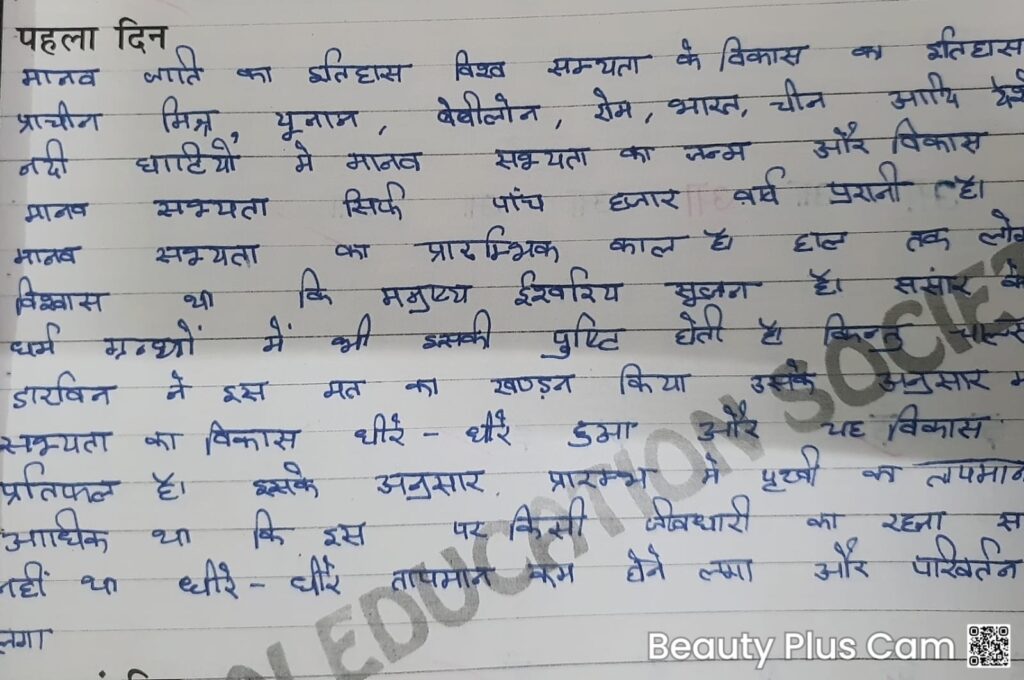 पहला दिन
मानव जाति का इतिहास विश्व सभ्यता के विकास का इतिहास
प्राचीन मिस्र, यूनान, बेबीलोन, रोम, भारत, चीन आदि
नदी घाटियों मे मानव सभ्यता का जन्म और विकास
मानव सभ्यता सिर्फ पांच हजार वर्ष पुरानी है।
मानव सभ्यता का प्रारम्भिक काल है। हाल तक
विश्वास था कि मनुष्य ईश्वरिय सृजन है। ससांर
धर्म ग्रन्थों में भी इसकी पुष्टि होती है। किन्तु
डारविन ने इस मत का खण्ड़न किया उसके अनुसार
सभ्यता का विकास धीरे - धीरे हुआ और यह विकास
प्रतिफल है। इसके अनुसार, प्रारम्भ मे पृथ्वी का तापमान
आधिक था कि इस पर किसी जीवधारी का रहना
नहीं था धीरे - धीरे तापमान कम होने लगा और परिवर्तन
लगा
EDUCATION SOCIE
Beauty Plus Cam